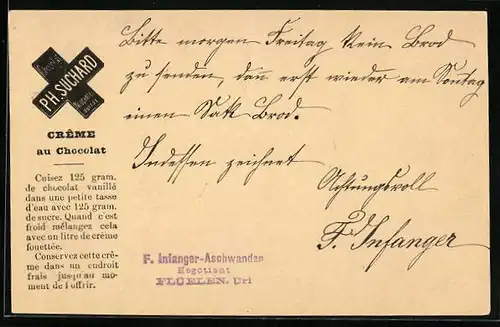 PH. SUCHARD
CRÊME
au Chocolat
Cuisez 125 gram.
de chocolat vanillé
dans une petite tasse
d'eau avec 125 gram.
de sucre. Quand c'est
froid mélangez cela
avec un litre de crême
fouettée.
Conservez cette crê-
me dans un endroit
frais jusqu'au mo-
ment de l'offrir.
Bitte morgen Freitag kein Brod
zu senden, dan erst wieder am Sontag
einen Sak Brod.
Indessen zeichnet
Achtungsvoll
F. Infanger
F. Infanger-Aschwanden
Negotiant
FLUELEN. Uri